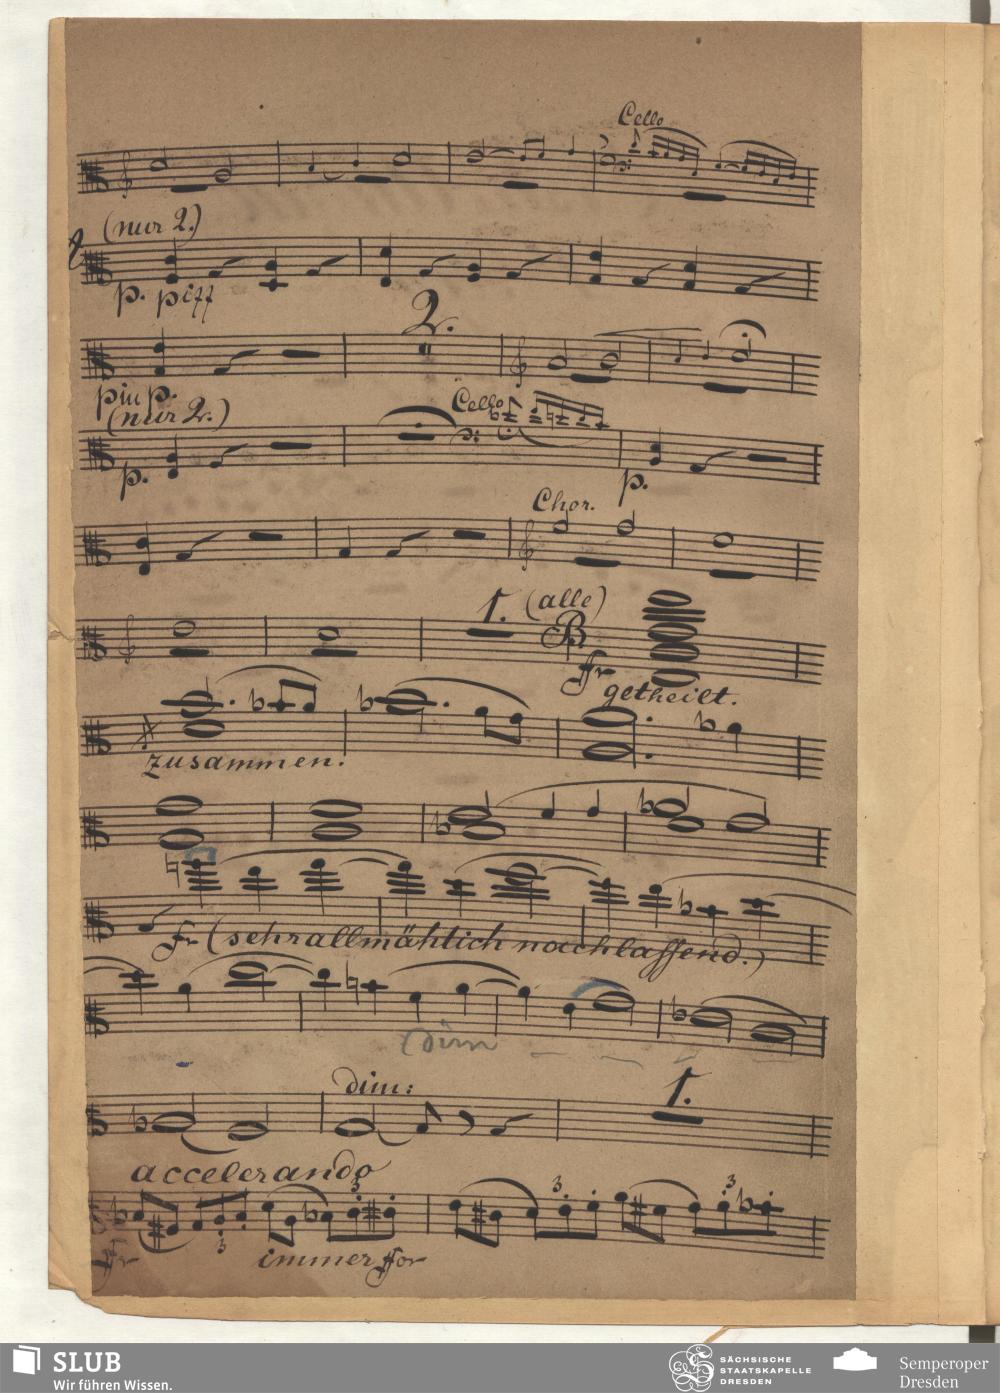 Cello
(nur 2.)
p. pizz
2.
più p.
(nur 2.)
Cello
p.
p.
Chor.
1.
(alle)
ff
getheilt.
zusammen.
ff (sehr allmählich nachlassend.)
dim
dim:
1.
accelerando
3
3
3
3
ff
immer ff
SLUB
Wir führen Wissen.
SÄCHSISCHE
STAATSKAPELLE
DRESDEN
Semperoper
Dresden